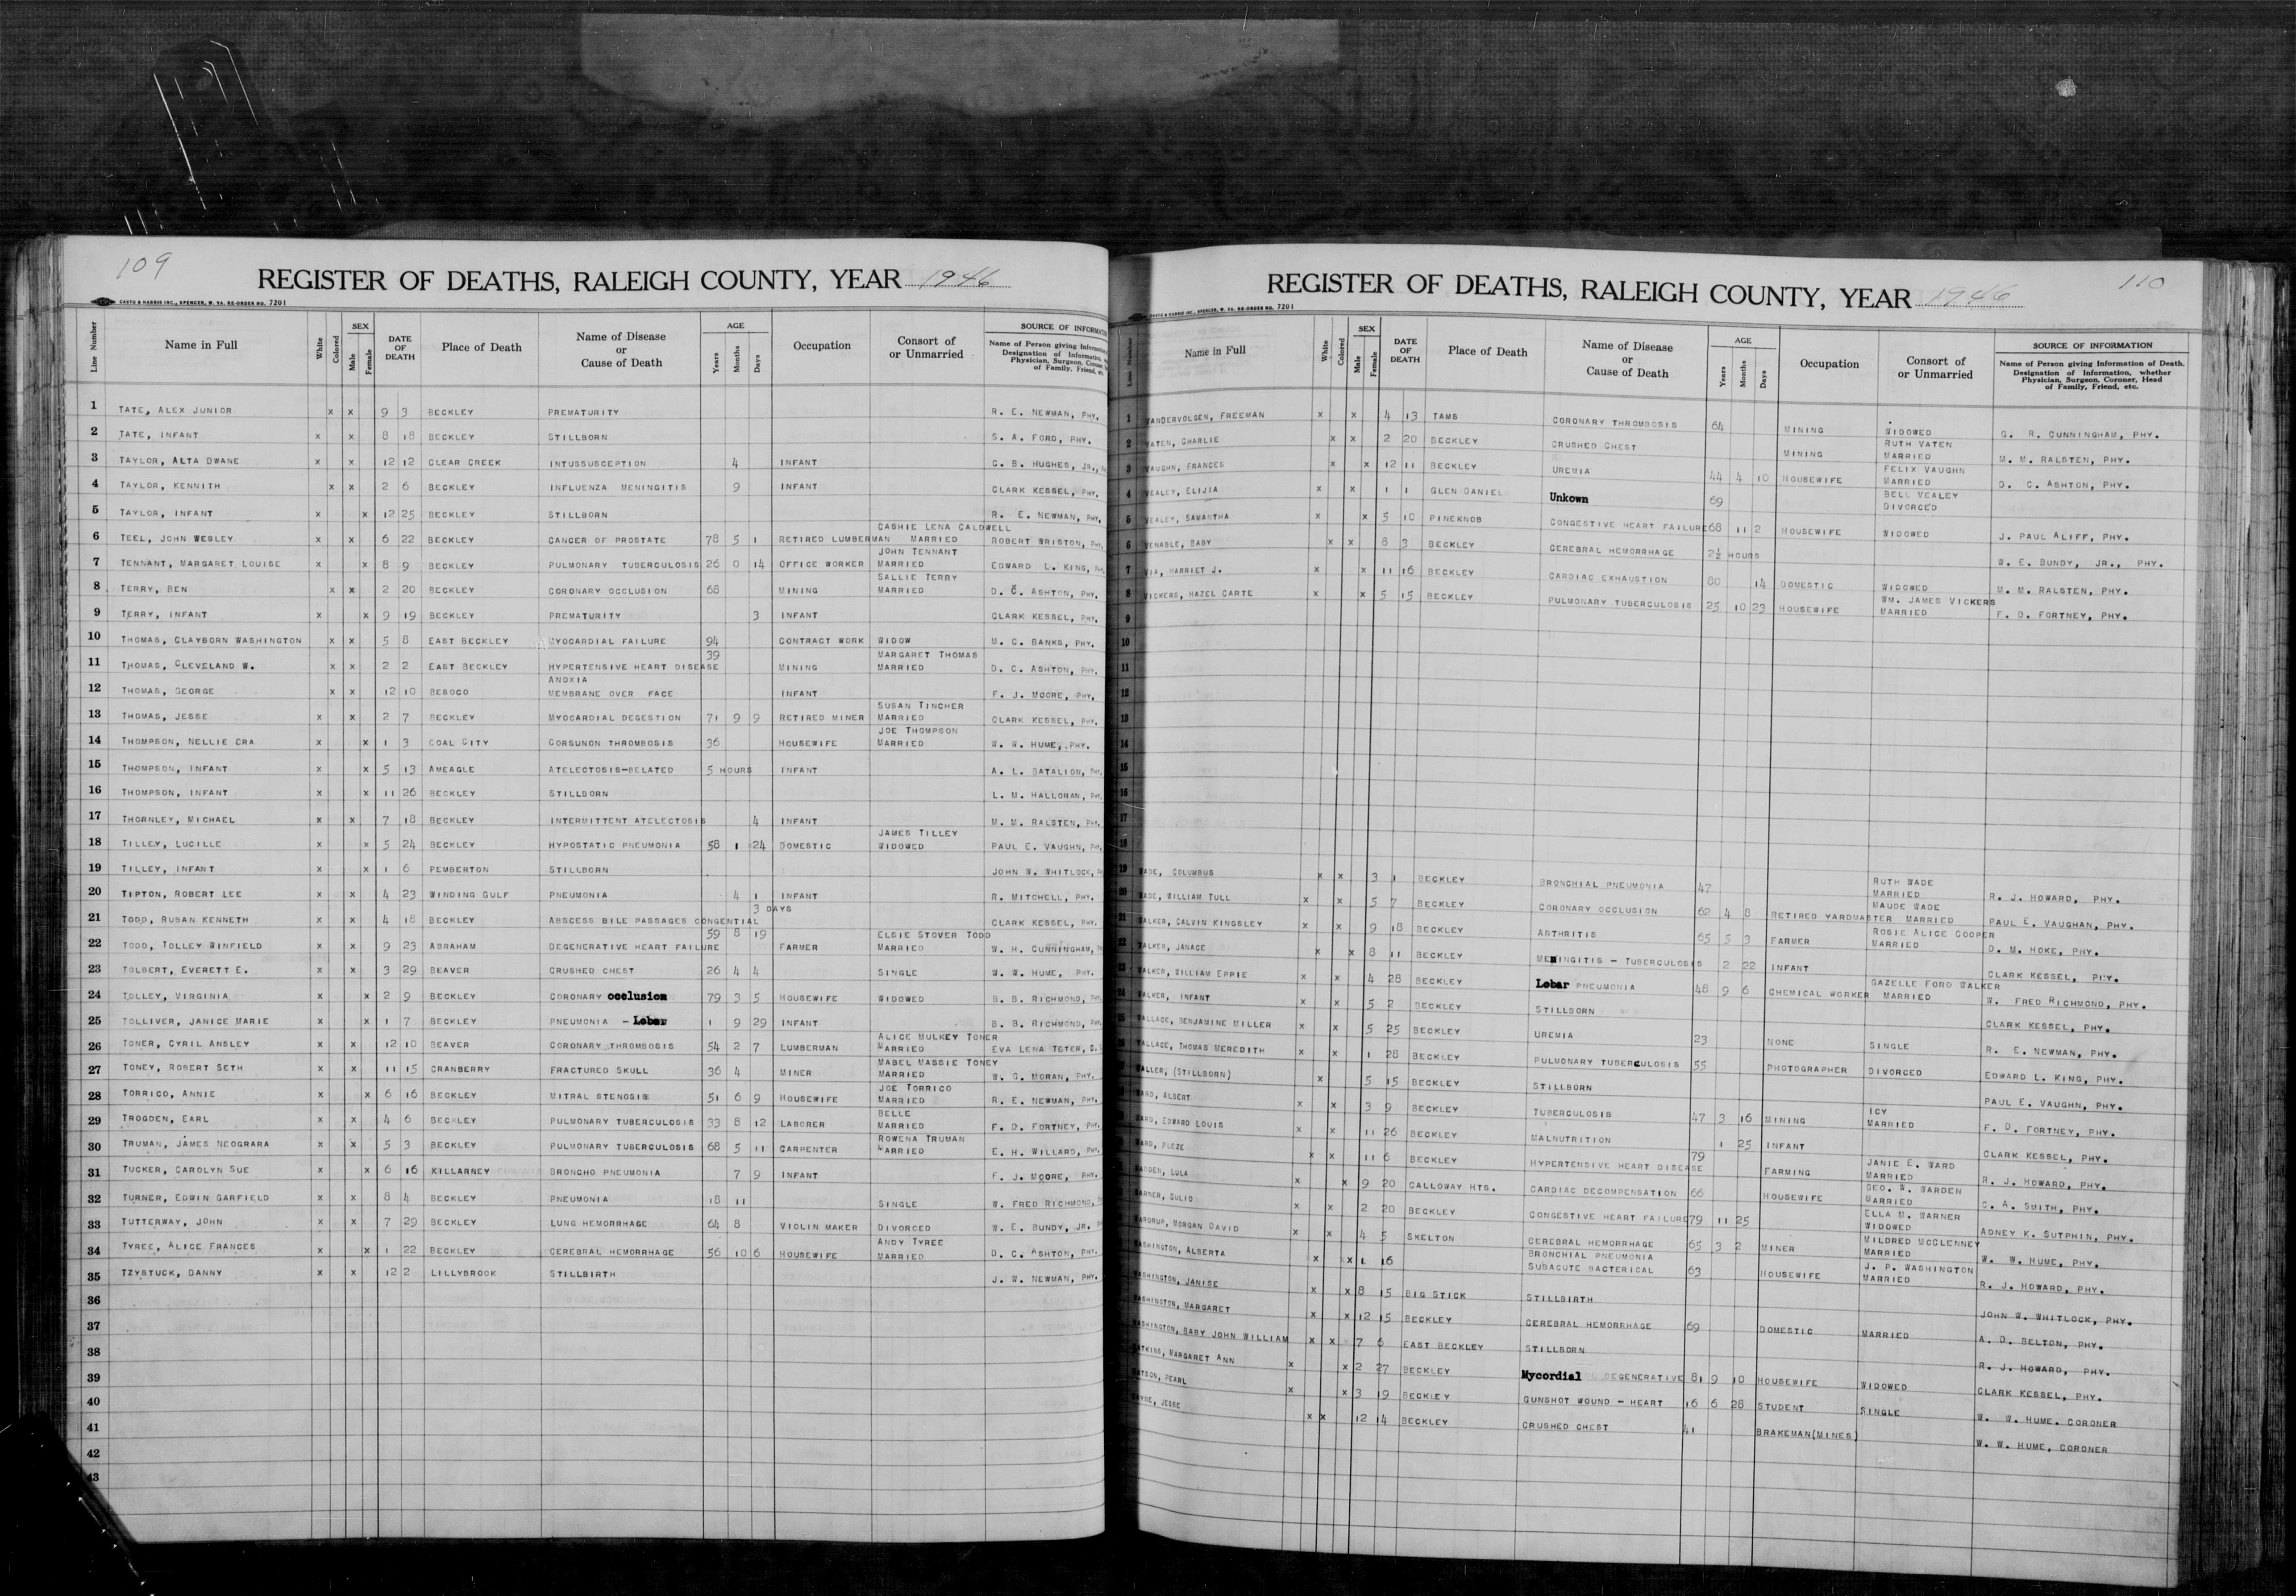 109
REGISTER OF DEATHS, RALEIGH COUNTY, YEAR 1946
CASTO & HARRIS INC., SPENCER, W. VA. RE-ORDER NO. 7201
Line Number Name in Full White Colored SEX Male Female DATE OF DEATH Place of Death Name of Disease or Cause of Death AGE Years Months Days Occupation Consort of or Unmarried SOURCE OF INFORMATIO
Name of Person giving Information
Designation of Information,
Physician, Surgeon, Coroner,
of Family, Friend, etc.
1 TATE, ALEX JUNIOR x x 9 3 BECKLEY PREMATURITY R. E. NEWMAN, PHY.
2 TATE, INFANT x x 8 18 BECKLEY STILLBORN S. A. FORD, PHY.
3 TAYLOR, ALTA DWANE x x 12 12 CLEAR CREEK INTUSSUSCEPTION 4 INFANT C. B. HUGHES, JR.,
4 TAYLOR, KENNITH x x 2 6 BECKLEY INFLUENZA MENINGITIS 9 INFANT CLARK KESSEL, PHY.
5 TAYLOR, INFANT x x 12 25 BECKLEY STILLBORN R. E. NEWMAN, PHY.
CASHIE LENA CALDWELL
6 TEEL, JOHN WESLEY x x 6 22 BECKLEY CANCER OF PROSTATE 78 5 1 RETIRED LUMBERMAN MARRIED ROBERT WRISTON, PHY.
JOHN TENNANT
7 TENNANT, MARGARET LOUISE x x 8 9 BECKLEY PULMONARY TUBERCULOSIS 26 0 14 OFFICE WORKER MARRIED EDWARD L. KING, PHY.
SALLIE TERRY
8 TERRY, BEN x x 2 20 BECKLEY CORONARY OCCLUSION 68 MINING MARRIED D. C. ASHTON, PHY.
9 TERRY, INFANT x x 9 19 BECKLEY PREMATURITY 3 INFANT CLARK KESSEL, PHY.
10 THOMAS, CLAYBORN WASHINGTON x x 5 8 EAST BECKLEY MYOCARDIAL FAILURE 94 CONTRACT WORK WIDOW M. C. BANKS, PHY.
39 MARGARET THOMAS
11 THOMAS, CLEVELAND W. x x 2 2 EAST BECKLEY HYPERTENSIVE HEART DISEASE MINING MARRIED D. C. ASHTON, PHY.
ANOXIA
12 THOMAS, GEORGE x x 12 10 BESOCO MEMBRANE OVER FACE INFANT F. J. MOORE, PHY.
SUSAN TINCHER
13 THOMAS, JESSE x x 2 7 BECKLEY MYOCARDIAL DEGESTION 71 9 9 RETIRED MINER MARRIED CLARK KESSEL, PHY.
JOE THOMPSON
14 THOMPSON, NELLIE ORA x x 1 3 COAL CITY CORSUNON THROMBOSIS 36 HOUSEWIFE MARRIED W. W. HUME, PHY.
15 THOMPSON, INFANT x x 5 13 AMEAGLE ATELECTOSIS-BELATED 5 HOURS INFANT A. L. BATALION, PHY.
16 THOMPSON, INFANT x x 11 26 BECKLEY STILLBORN L. M. HALLORAN, PHY.
17 THORNLEY, MICHAEL x x 7 18 BECKLEY INTERMITTENT ATELECTOSIS 4 INFANT M. M. RALSTEN, PHY.
JAMES TILLEY
18 TILLEY, LUCILLE x x 5 24 BECKLEY HYPOSTATIC PNEUMONIA 58 1 24 DOMESTIC WIDOWED PAUL E. VAUGHN, PHY.
19 TILLEY, INFANT x x 1 6 PEMBERTON STILLBORN JOHN W. WHITLOCK,
20 TIPTON, ROBERT LEE x x 4 23 WINDING GULF PNEUMONIA 4 1 INFANT R. MITCHELL, PHY.
3 DAYS
21 TODD, RUSAN KENNETH x x 4 18 BECKLEY ABSCESS BILE PASSAGES CONGENTIAL CLARK KESSEL, PHY.
59 8 19 ELSIE STOVER TODD
22 TODD, TOLLEY WINFIELD x x 9 23 ABRAHAM DEGENERATIVE HEART FAILURE FARMER MARRIED W. H. CUNNINGHAM,
23 TOLBERT, EVERETT E. x x 3 29 BEAVER CRUSHED CHEST 26 4 4 SINGLE W. W. HUME, PHY.
24 TOLLEY, VIRGINIA x x 2 9 BECKLEY CORONARY occlusion 79 3 5 HOUSEWIFE WIDOWED B. B. RICHMOND, PHY.
25 TOLLIVER, JANICE MARIE x x 1 7 BECKLEY PNEUMONIA - Lobar 1 9 29 INFANT B. B. RICHMOND, PHY.
ALICE MULKEY TONER
26 TONER, CYRIL ANSLEY x x 12 10 BEAVER CORONARY THROMBOSIS 54 2 7 LUMBERMAN MARRIED EVA LENA TETER,
MABEL MASSIE TONEY
27 TONEY, ROBERT SETH x x 11 15 CRANBERRY FRACTURED SKULL 36 4 MINER MARRIED W. G. MORAN, PHY.
JOE TORRICO
28 TORRICO, ANNIE x x 6 16 BECKLEY MITRAL STENOSIS 51 6 9 HOUSEWIFE MARRIED R. E. NEWMAN, PHY.
BELLE
29 TROGDEN, EARL x x 4 6 BECKLEY PULMONARY TUBERCULOSIS 33 8 12 LABORER MARRIED F. D. FORTNEY, PHY.
ROWENA TRUMAN
30 TRUMAN, JAMES NEOGRARA x x 5 3 BECKLEY PULMONARY TUBERCULOSIS 68 5 11 CARPENTER MARRIED E. H. WILLARD, PHY.
31 TUCKER, CAROLYN SUE x x 6 16 KILLARNEY BRONCHO PNEUMONIA 7 9 INFANT F. J. MOORE, PHY.
32 TURNER, EDWIN GARFIELD x x 8 4 BECKLEY PNEUMONIA 18 11 SINGLE W. FRED RICHMOND,
33 TUTTERWAY, JOHN x x 7 29 BECKLEY LUNG HEMORRHAGE 64 8 VIOLIN MAKER DIVORCED W. E. BUNDY, JR.
ANDY TYREE
34 TYREE, ALICE FRANCES x x 1 22 BECKLEY CEREBRAL HEMORRHAGE 56 10 6 HOUSEWIFE MARRIED D. C. ASHTON, PHY.
35 TZYSTUCK, DANNY x x 12 2 LILLYBROOK STILLBIRTH J. W. NEWMAN, PHY.
36
37
38
39
40
41
42
43
110
REGISTER OF DEATHS, RALEIGH COUNTY, YEAR 1946
CASTO & HARRIS INC., SPENCER, W. VA. RE-ORDER NO. 7201
Line Number Name in Full White Colored SEX Male Female DATE OF DEATH Place of Death Name of Disease or Cause of Death AGE Years Months Days Occupation Consort of or Unmarried SOURCE OF INFORMATION
Name of Person giving Information of Death.
Designation of Information, whether
Physician, Surgeon, Coroner, Head
of Family, Friend, etc.
1 VANDERVOLGEN, FREEMAN x x 4 13 TAMS CORONARY THROMBOSIS 64 MINING WIDOWED G. R. CUNNINGHAM, PHY.
RUTH VATEN
2 VATEN, CHARLIE x x 2 20 BECKLEY CRUSHED CHEST MINING MARRIED M. M. RALSTEN, PHY.
FELIX VAUGHN
3 VAUGHN, FRANCES x x 12 11 BECKLEY UREMIA 44 4 10 HOUSEWIFE MARRIED D. C. ASHTON, PHY.
BELL VEALEY
4 VEALEY, ELIJIA x x 1 1 GLEN DANIEL Unkown 69 DIVORCED
5 VEALEY, SAMANTHA x x 5 10 PINEKNOB CONGESTIVE HEART FAILURE 68 11 2 HOUSEWIFE WIDOWED J. PAUL ALIFF, PHY.
6 VENABLE, BABY x x 8 3 BECKLEY CEREBRAL HEMORRHAGE 2½ HOURS W. E. BUNDY, JR., PHY.
7 VIA, HARRIET J. x x 11 16 BECKLEY CARDIAC EXHAUSTION 80 14 DOMESTIC WIDOWED M. M. RALSTEN, PHY.
WM. JAMES VICKERS
8 VICKERS, HAZEL CARTE x x 5 15 BECKLEY PULMONARY TUBERCULOSIS 25 10 23 HOUSEWIFE MARRIED F. D. FORTNEY, PHY.
9
10
11
12
13
14
15
16
17
18
RUTH WADE
19 WADE, COLUMBUS x x 3 1 BECKLEY BRONCHIAL PNEUMONIA 47 MARRIED R. J. HOWARD, PHY.
MAUDE WADE
20 WADE, WILLIAM TULL x x 5 7 BECKLEY CORONARY OCCLUSION 62 4 8 RETIRED YARDMASTER MARRIED PAUL E. VAUGHAN, PHY.
ROSIE ALICE COOPER
21 WALKER, CALVIN KINGSLEY x x 9 18 BECKLEY ARTHRITIS 65 5 3 FARMER MARRIED D. M. HOKE, PHY.
22 WALKER, JANACE x x 8 11 BECKLEY MENINGITIS - TUBERCULOSIS 2 22 INFANT CLARK KESSEL, PHY.
GAZELLE FORD WALKER
23 WALKER, WILLIAM EPPIE x x 4 28 BECKLEY Lobar PNEUMONIA 48 9 6 CHEMICAL WORKER MARRIED W. FRED RICHMOND, PHY.
24 WALKER, INFANT x x 5 2 BECKLEY STILLBORN CLARK KESSEL, PHY.
25 WALLACE, BENJAMINE MILLER x x 5 25 BECKLEY UREMIA 23 NONE SINGLE R. E. NEWMAN, PHY.
26 WALLACE, THOMAS MEREDITH x x 1 28 BECKLEY PULMONARY TUBERCULOSIS 55 PHOTOGRAPHER DIVORCED EDWARD L. KING, PHY.
WALLER, (STILLBORN) x 5 15 BECKLEY STILLBORN PAUL E. VAUGHN, PHY.
ICY
WARD, ALBERT x x 3 9 BECKLEY TUBERCULOSIS 47 3 16 MINING MARRIED F. D. FORTNEY, PHY.
WARD, EDWARD LOUIS x x 11 26 BECKLEY MALNUTRITION 1 25 INFANT CLARK KESSEL, PHY.
79 JANIE E. WARD
WARD, PLEZE x x 11 6 BECKLEY HYPERTENSIVE HEART DISEASE FARMING MARRIED R. J. HOWARD, PHY.
GEO. W. WARDEN
WARDEN, LULA x x 9 20 CALLOWAY HTS. CARDIAC DECOMPENSATION 66 HOUSEWIFE MARRIED C. A. SMITH, PHY.
ELLA M. WARNER
WARNER, GULIO x x 2 20 BECKLEY CONGESTIVE HEART FAILURE 79 11 25 WIDOWED ADNEY K. SUTPHIN, PHY.
MILDRED MCCLENNEY
WARDRUP, MORGAN DAVID x x 4 5 SKELTON CEREBRAL HEMORRHAGE 65 3 2 MINER MARRIED W. W. HUME, PHY.
BRONCHIAL PNEUMONIA J. P. WASHINGTON
WASHINGTON, ALBERTA x x 1 16 SUBACUTE BACTERICAL 63 HOUSEWIFE MARRIED R. J. HOWARD, PHY.
WASHINGTON, JANISE x x 8 15 BIG STICK STILLBIRTH JOHN W. WHITLOCK, PHY.
WASHINGTON, MARGARET x x 12 15 BECKLEY CEREBRAL HEMORRHAGE 69 DOMESTIC MARRIED A. D. BELTON, PHY.
WASHINGTON, BABY JOHN WILLIAM x x 7 6 EAST BECKLEY STILLBORN R. J. HOWARD, PHY.
WATKINS, MARGARET ANN x x 2 27 BECKLEY Mycordial DEGENERATIVE 81 9 10 HOUSEWIFE WIDOWED CLARK KESSEL, PHY.
WATSON, PEARL x x 3 19 BECKLEY GUNSHOT WOUND - HEART 16 6 28 STUDENT SINGLE W. W. HUME. CORONER
WAYNE, JESSE x x 12 14 BECKLEY CRUSHED CHEST 41 BRAKEMAN(MINES) W. W. HUME, CORONER